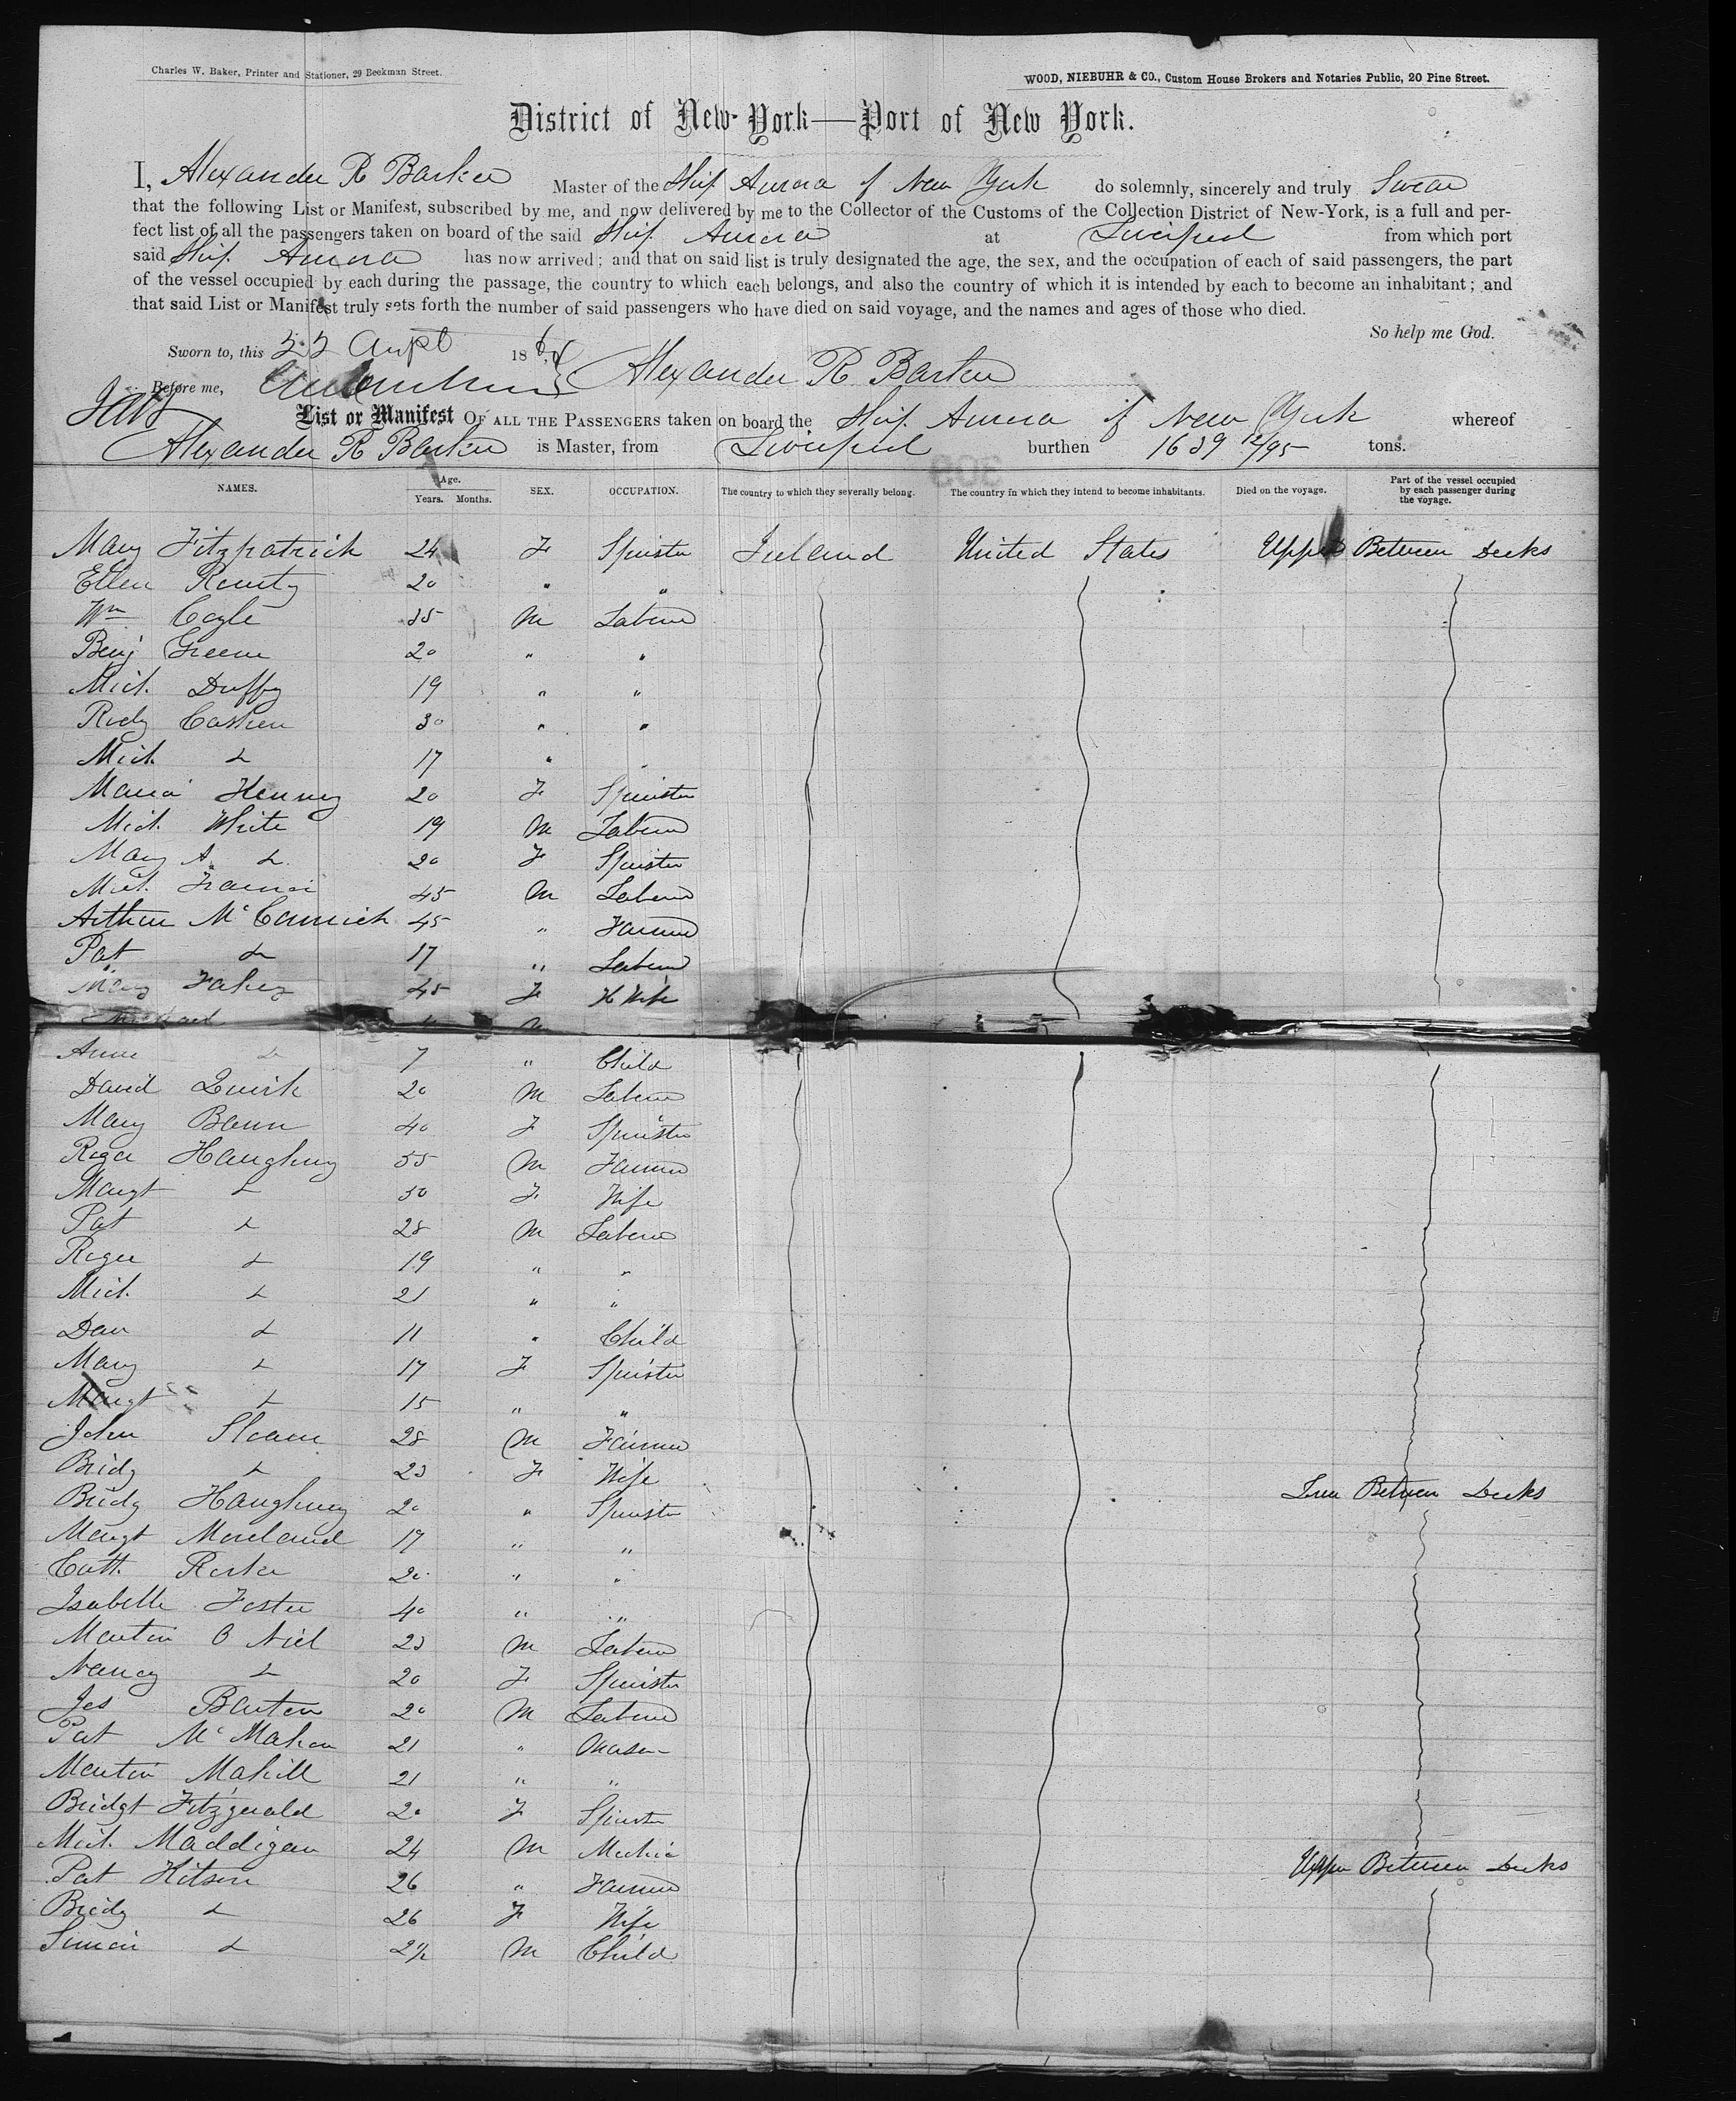 Charles W. Baker, Printer and Stationer, 29 Beekman Street.
WOOD, NIEBUHR & CO., Custom House Brokers and Notaries Public, 20 Pine Street.
District of New-York—Port of New York.
I, Alexander R Barker Master of the Ship Aurora of New York do solemnly, sincerely and truly Swear
that the following List or Manifest, subscribed by me, and now delivered by me to the Collector of the Customs of the Collection District of New-York, is a full and per-
fect list of all the passengers taken on board of the said Ship Aurora at Liverpool from which port
said Ship Aurora has now arrived; and that on said list is truly designated the age, the sex, and the occupation of each of said passengers, the part
of the vessel occupied by each during the passage, the country to which each belongs, and also the country of which it is intended by each to become an inhabitant; and
that said List or Manifest truly sets forth the number of said passengers who have died on said voyage, and the names and ages of those who died.
So help me God.
Sworn to, this 22 186
Before me, Alexander R Barker
List or Manifest OF ALL THE PASSENGERS taken on board the Ship Aurora of New York whereof
Alexander R Barker is Master, from Liverpool burthen 1639 12/95 tons.
NAMES. Age. Years. Months. SEX. OCCUPATION. The country to which they severally belong. The country in which they intend to become inhabitants. Died on the voyage. Part of the vessel occupied by each passenger during the voyage.
Mary Fitzpatrick 24 F Spinster Ireland United States Upper Between Decks
Ellen 20 " "
Wm Coyle 35 M Laborer
Benj Greene 20 " "
Mich. Duffy 19 " "
Rody 30 " "
Mich. do 17 " "
Maria Henny 20 F Spinster
Mich. White 19 M Laborer
Mary A. do 20 F Spinster
Mich. 45 M Laborer
Arthur McCormick 45 " Farmer
Pat do 17 " Laborer
Mary Fahey 45 F H Wife
Michael M
Anne do 7 " Child
David Quirk 20 M Laborer
Mary 40 F Spinster
Roger Haughney 55 M Farmer
Margt do 50 F Wife
Pat do 28 M Laborer
Roger do 19 " "
Mich. do 21 " "
Dan do 11 " Child
Mary do 17 F Spinster
Margt do 15 " "
John Sloane 28 M Farmer
Bridg do 23 F Wife
Bridg Haughney 20 " Spinster Lower Between Decks
Margt Moreland 17 " "
Cath. 20 " "
Isabella Foster 40 " "
Martin O Niel 23 M Laborer
Nancy do 20 F Spinster
Jas Barton 20 M Laborer
Pat McMahon 21 " Mason
Martin Mahill 21 " "
Bridgt Fitzgerald 20 F Spinster
Mich. Maddigan 24 M
Pat Hitson 26 " Farmer Upper Between Decks
Bridg do 26 F Wife
Simon do 2½ M Child